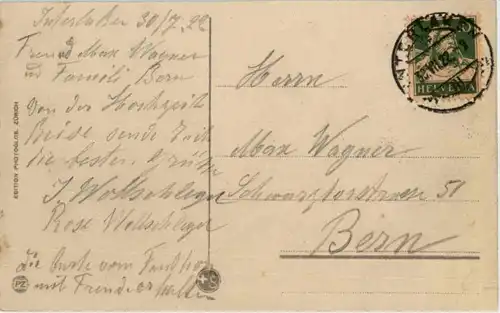 Interlaken 30/7 22
Freund Max Wagner
u Famili Bern
Von der Hochzeit
Reise sende Euch
die besten Grüße
J Wollschleger
Rose Wollschleger
die Karte vom
mit Freude erhalten
Herrn
Max Wagner
Schwarztorstrasse 51
Bern
EDITION PHOTOGLOB, ZÜRICH
PZ
HELVETIA
10
INTERLAKEN